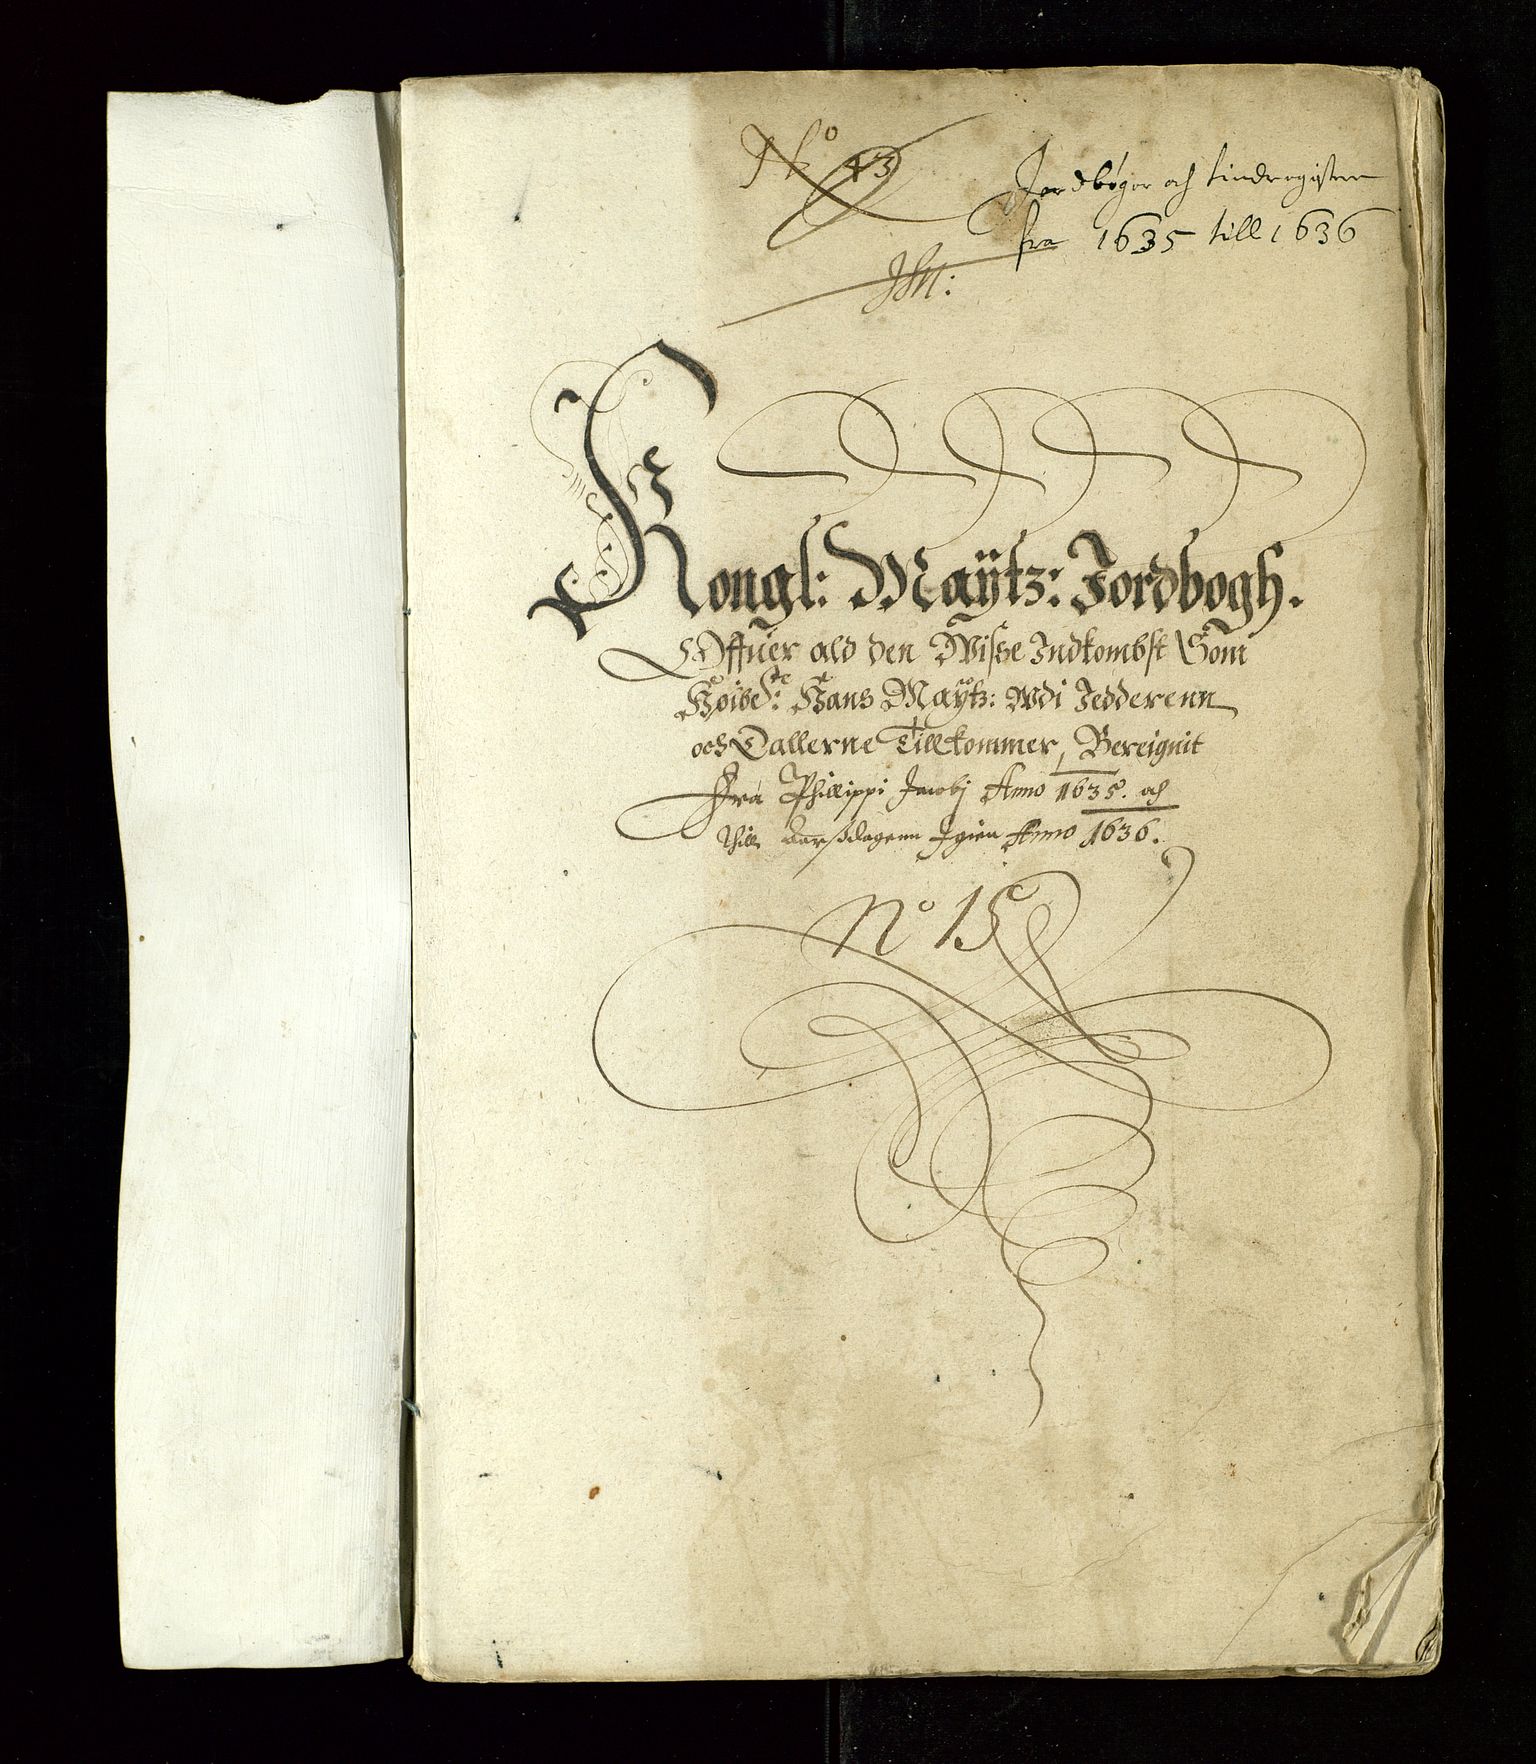 No 13
Jordbøger och tiendregister
fra 1635 till 1636
Kongl: Maÿtz: Jordbogh.
Offuer ald den Wisse Indkombst Som
Høibete: Hans Maÿtz: Udi Jedderenn
och Dallerne Tillkommer, Bereignit
Fra Phillippi Jacobj Anno 1635. och
thill Aarßdagenn Igien Anno 1636.
No 15